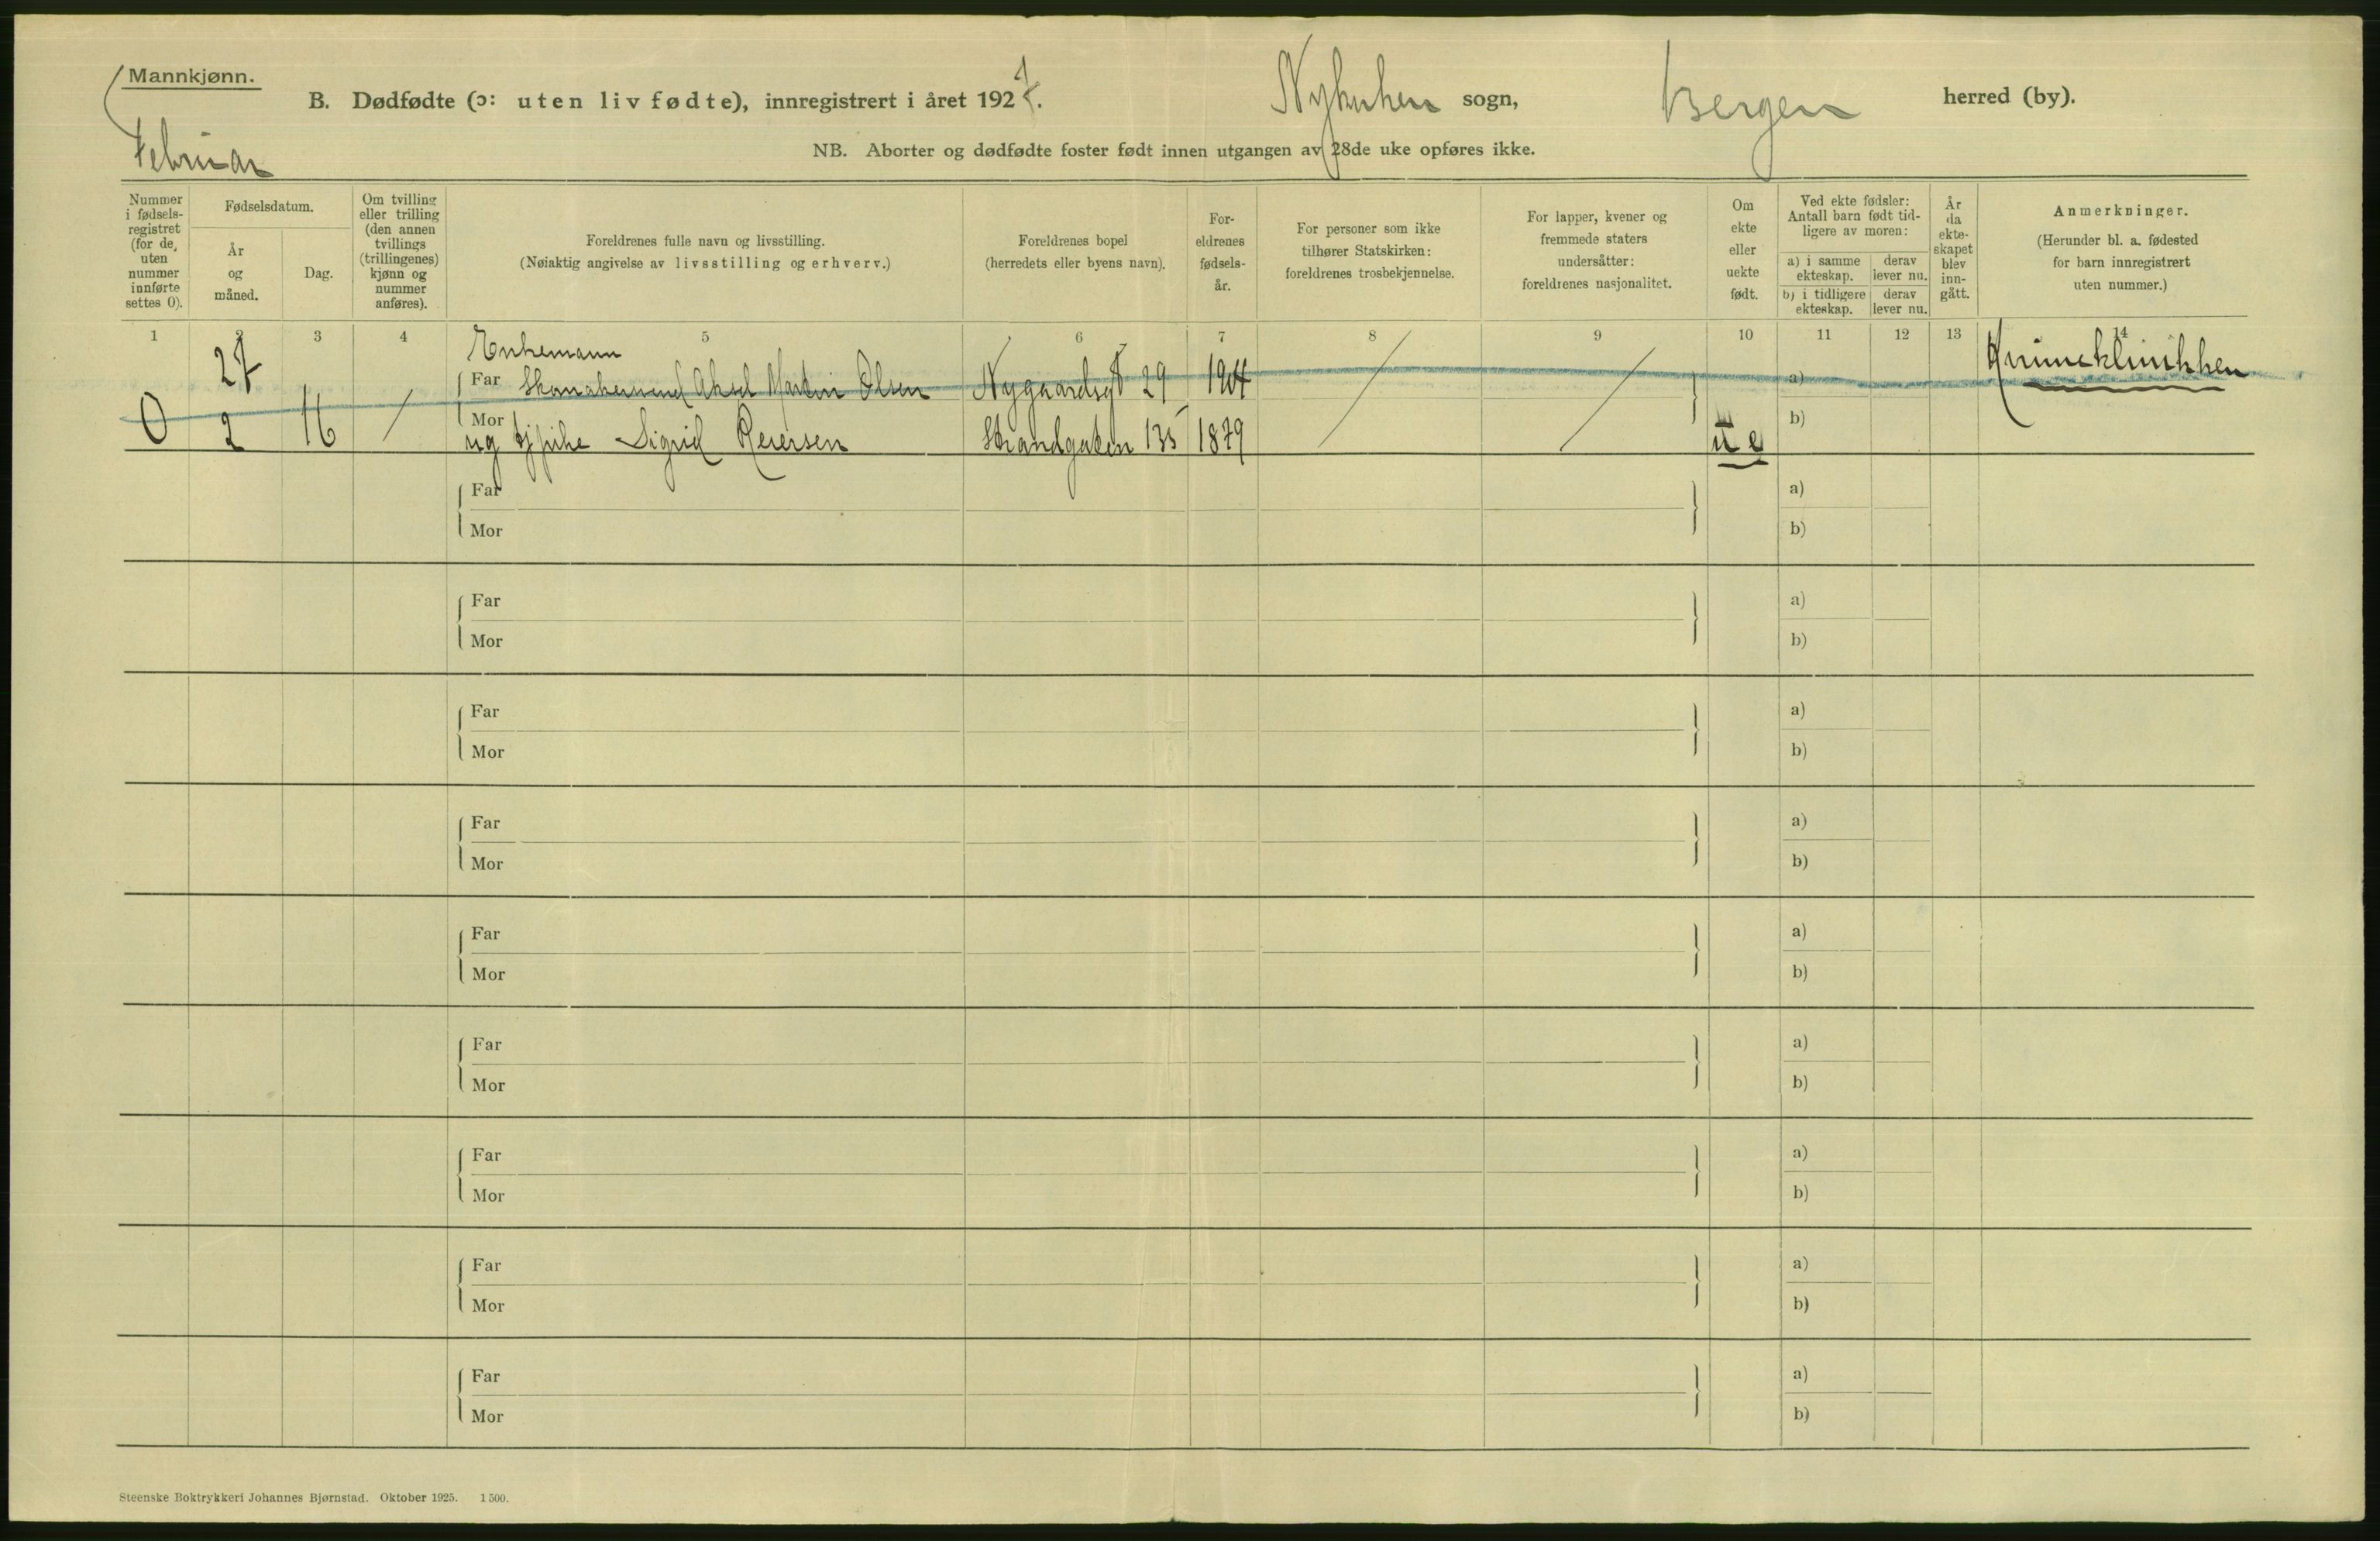 Mannkjønn.
B. Dødfødte (ɔ: uten liv fødte), innregistrert i året 1927.
Nykirken sogn,
Bergen herred (by).
Februar
NB. Aborter og dødfødte foster født innen utgangen av 28de uke opføres ikke.
Nummer
i fødsels-
registret
(for de,
uten
nummer
innførte
settes 0).
Fødselsdatum.
År
og
måned.
Dag.
Om tvilling
eller trilling
(den annen
tvillings
(trillingenes)
kjønn og
nummer
anføres).
Foreldrenes fulle navn og livsstilling.
(Nøiaktig angivelse av livsstilling og erhverv.)
Foreldrenes bopel
(herredets eller byens navn).
For-
eldrenes
fødsels-
år.
For personer som ikke
tilhører Statskirken:
foreldrenes trosbekjennelse.
For lapper, kvener og
fremmede staters
undersåtter:
foreldrenes nasjonalitet.
Om
ekte
eller
uekte
født.
Ved ekte fødsler:
Antall barn født tid-
ligere av moren:
a) i samme
ekteskap.
derav
lever nu.
b) i tidligere
ekteskap.
derav
lever nu.
År
da
ekte-
skapet
blev
inn-
gått.
Anmerkninger.
(Herunder bl. a. fødested
for barn innregistrert
uten nummer.)
1 2 3 4 5 6 7 8 9 10 11 12 13 14
Enkemann
27
Far Aksel Martin Olsen Nygaardsgt 29 1904 a) Kvinneklinikken
0 2 16 / Mor b)
ug Sigrid Reiersen Strandgaten 135 1879 u e
Far a)
Mor b)
Far a)
Mor b)
Far a)
Mor b)
Far a)
Mor b)
Far a)
Mor b)
Far a)
Mor b)
Far a)
Mor b)
Far a)
Mor b)
Far a)
Mor b)
Steenske Boktrykkeri Johannes Bjørnstad. Oktober 1925. 1500.